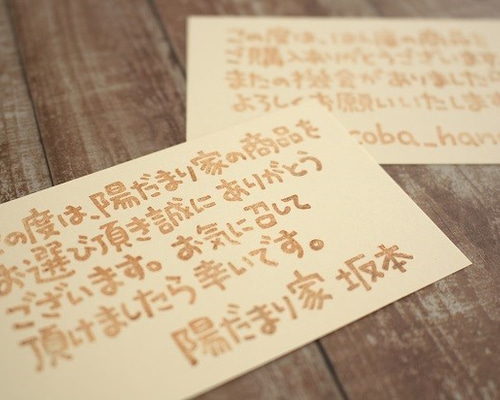 この度は、はん屋の商品を
ご購入ありがとうございます
またの機会がありましたら
よろしくお願いいたします
oba_han
の度は、陽だまり家の商品を
お選び頂き誠にありがとう
ございます。お気に召して
頂けましたら幸いです。
陽だまり家 坂本